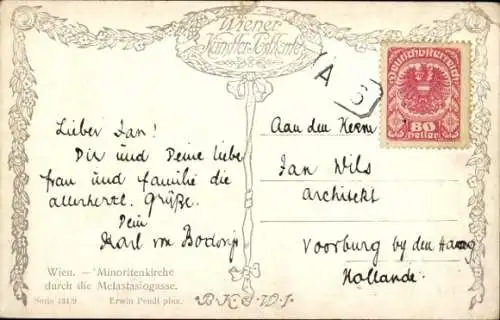 Wiener
Künstler-Postkarte
A
S
Deutschösterreich
80
Heller
Lieber Jan!
Dir und Deine liebe
frau und familie die
allerherzl. Grüße.
Dein
Karl von
Aan den Herrn
Jan Wils
Architekt
Voorburg by den Haag
Hollande.
Wien. — Minoritenkirche
durch die Metastasiogasse.
Serie 181/9 Erwin Pendl pinx.
B.K.W.I.